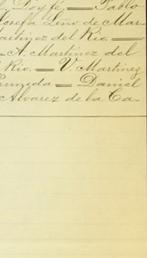 Doy fé, — Pablo
Josefa Lino de Mar-
tinez del Rio —
— A. Martinez del
Rio. — V. Martinez
— Daniel
Alvarez de la Ca-